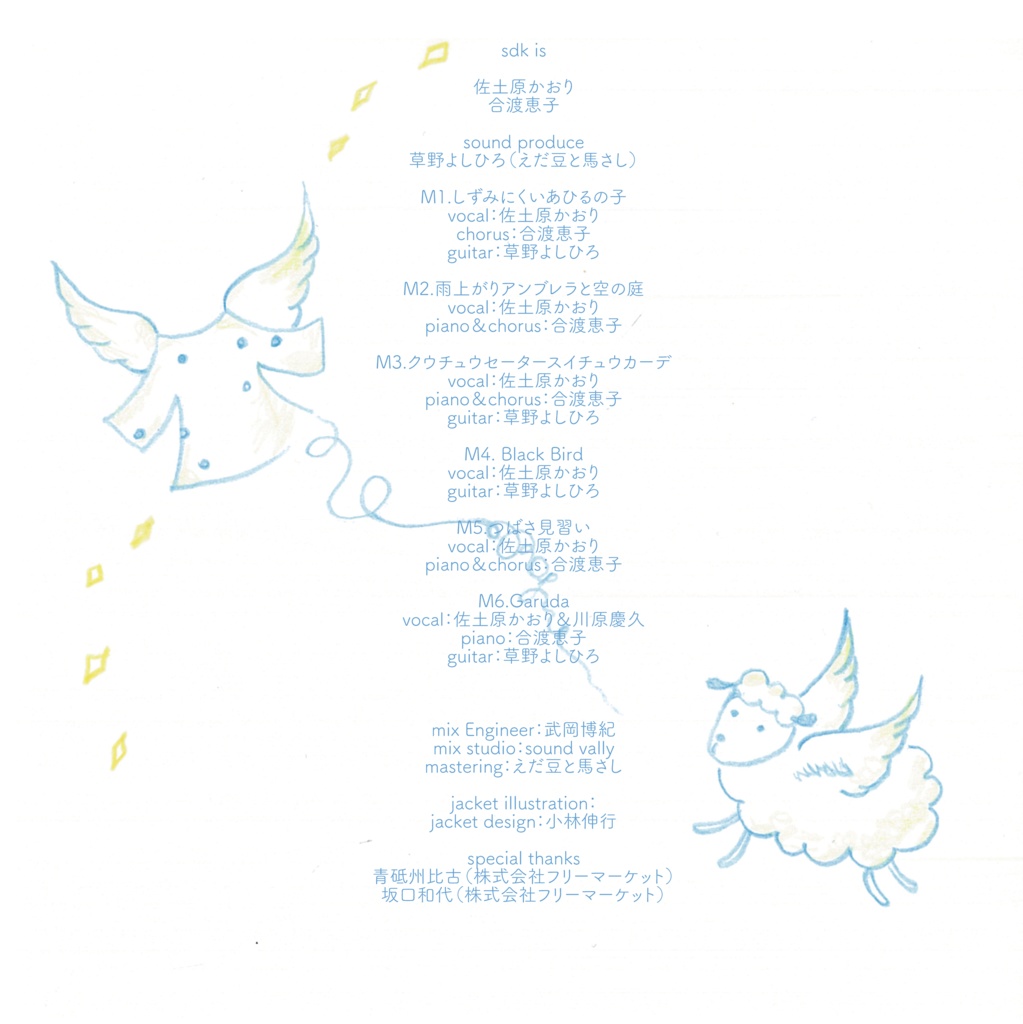 sdk is
佐土原かおり
合渡恵子
sound produce
草野よしひろ（えだ豆と馬さし）
M1.しずみにくいあひるの子
vocal：佐土原かおり
chorus：合渡恵子
guitar：草野よしひろ
M2.雨上がりアンブレラと空の庭
vocal：佐土原かおり
piano＆chorus：合渡恵子
M3.クウチュウセータースイチュウカーデ
vocal：佐土原かおり
piano＆chorus：合渡恵子
guitar：草野よしひろ
M4. Black Bird
vocal：佐土原かおり
guitar：草野よしひろ
M5.つばさ見習い
vocal：佐土原かおり
piano＆chorus：合渡恵子
M6.Garuda
vocal：佐土原かおり＆川原慶久
piano：合渡恵子
guitar：草野よしひろ
mix Engineer：武岡博紀
mix studio：sound vally
mastering：えだ豆と馬さし
jacket illustration：
jacket design：小林伸行
special thanks
青砥州比古（株式会社フリーマーケット）
坂口和代（株式会社フリーマーケット）